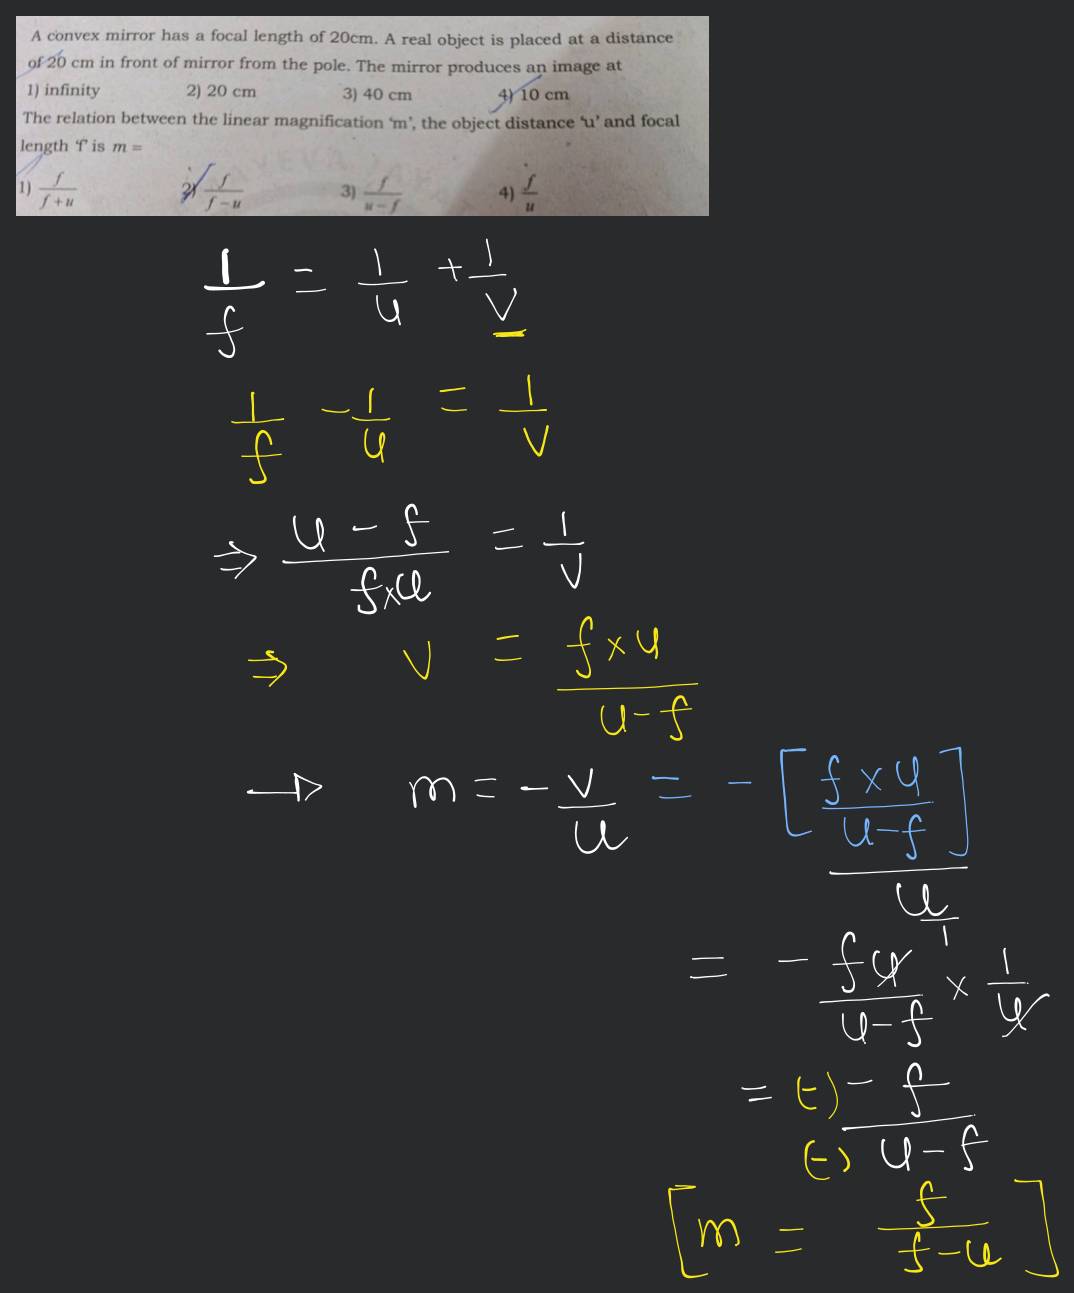 A convex mirror has a focal length of 20cm. A real object is placed at a distance
of 20 cm in front of mirror from the pole. The mirror produces an image at
1) infinity 2) 20 cm 3) 40 cm 4) 10 cm
The relation between the linear magnification 'm', the object distance 'u' and focal
length 'f' is m =
1) f/(f+u) 2) f/(f-u) 3) f/(u-f) 4) f/u
1/f = 1/u + 1/v
1/f - 1/u = 1/v
⇒ (u - f)/(f×u) = 1/v
⇒ v = (f×u)/(u-f)
→ m = -v/u = -[(f×u)/(u-f)]/(u/1)
= -fu/(u-f) × 1/u
= (-) -f/(-) u-f
[m = f/(f-u)]